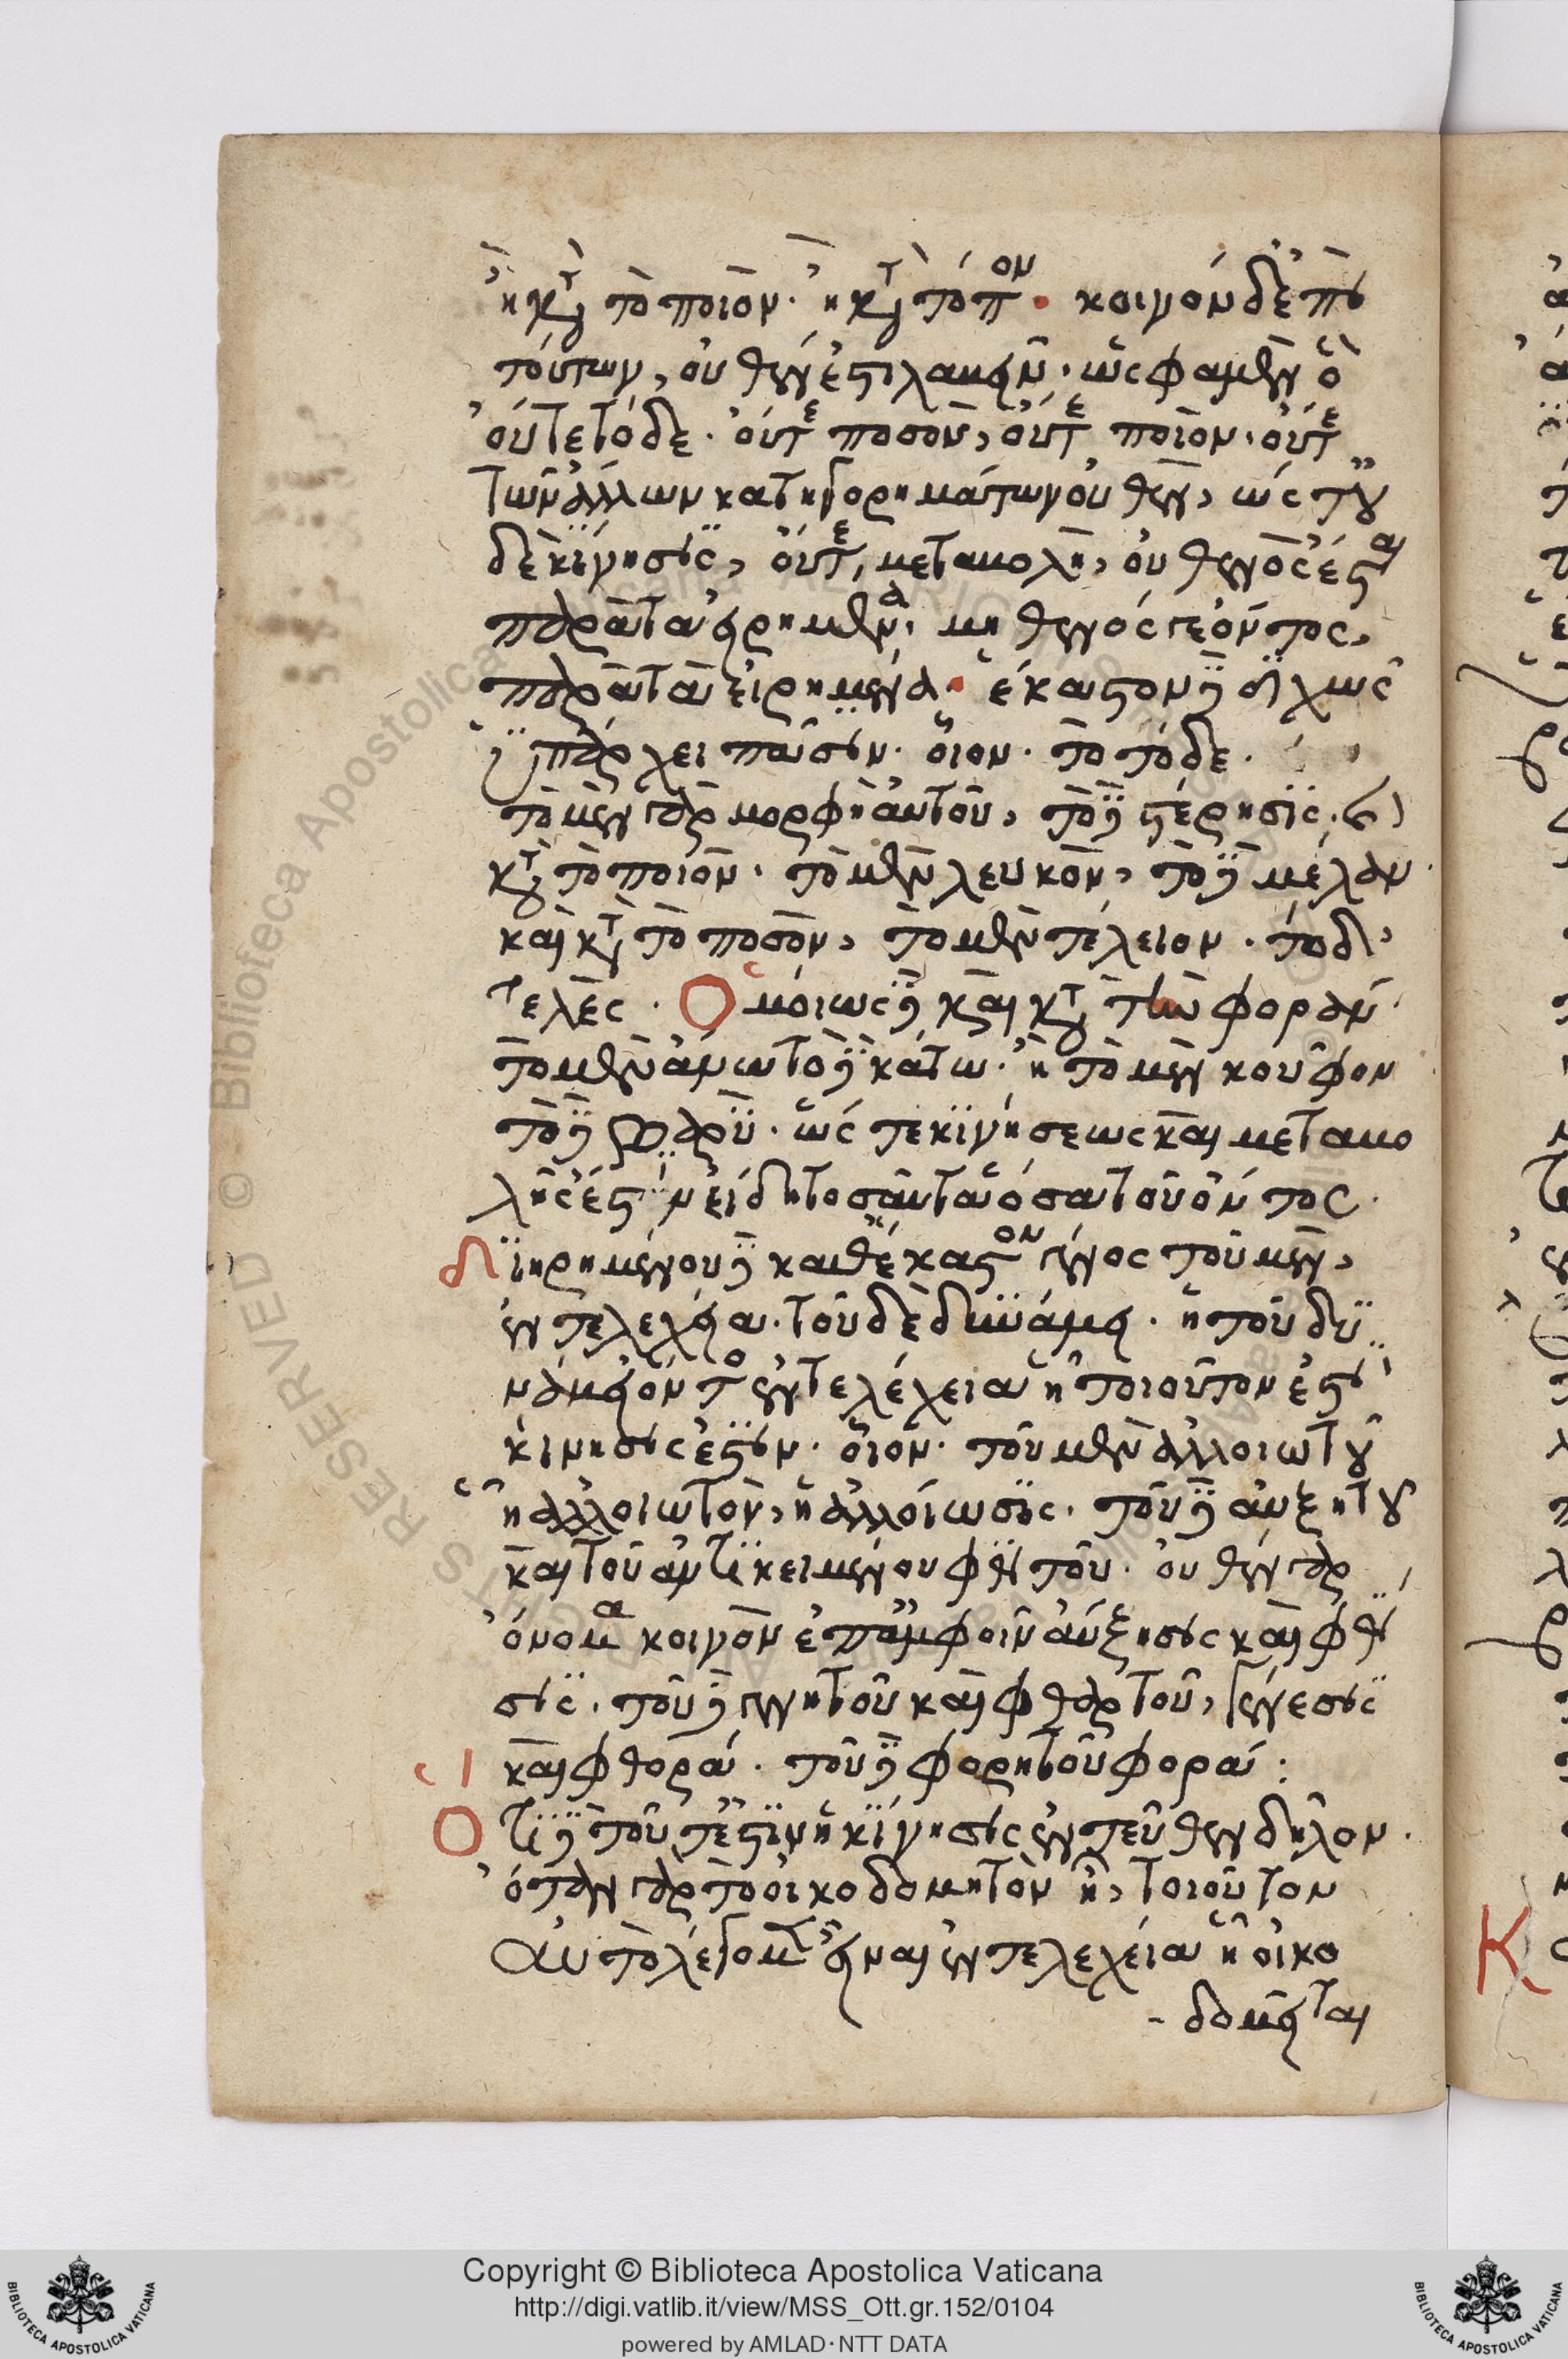 ἢ κατὰ τὸ ποιὸν· ἢ κατὰ τόπον· κοινὸν δὲ ἐπὶ
τούτων, οὐθὲν ἔστι λαβεῖν· ὥς φαμὲν ὃ
οὔτε τόδε· οὔτε ποσὸν, οὔτε ποιὸν· οὔτε
τῶν ἄλλων κατηγορημάτων οὐθὲν, ὥς τ' οὐ
δὲ κίνησις, οὔτε μεταβολὴ, οὐθενὸς ἔσται
παρὰ τὰ εἰρημένα· μηθενός γε ὄντος,
παρὰ τὰ εἰρημένα· ἕκαστον δὲ διχῶς
ὑπάρχει πᾶσιν· οἷον· τὸ τόδε·
τὸ μὲν γὰρ μορφὴ αὐτοῦ, τὸ δὲ στέρησις· καὶ
κατὰ τὸ ποιὸν· τὸ μὲν λευκὸν, τὸ δὲ μέλαν·
καὶ κατὰ τὸ ποσὸν, τὸ μὲν τέλειον· τὸ δ'
τελὲς· Ὁμοίως δὲ καὶ κατὰ τὴν φορὰν·
τὸ μὲν ἄνω τὸ δὲ κάτω· ἢ τὸ μὲν κοῦφον
τὸ δὲ βαρὺ· ὥς τε κινήσεως καὶ μεταβο
λῆς ἐστὶν εἴδη τοσαῦτα ὅσα τοῦ ὄντος·
Διηρημένου δὲ καθ' ἕκαστον γένος τοῦ μὲν,
ἐντελεχείᾳ· τοῦ δὲ δυνάμει· ἡ τοῦ δυ
νάμει ὄντος ἐντελέχεια ἧ τοιοῦτον ἐστὶ
κίνησις ἐστὶν· οἷον· τοῦ μὲν ἀλλοιωτοῦ
ἧ ἀλλοιωτὸν, ἡ ἀλλοίωσις· τοῦ δὲ αὐξητοῦ
καὶ τοῦ ἀντικειμένου φθιτοῦ· οὐθὲν γὰρ
ὄνομα κοινὸν ἐπ' ἀμφοῖν αὔξησις καὶ φθί
σις· τοῦ δὲ γενητοῦ καὶ φθαρτοῦ, γένεσις
καὶ φθορά· τοῦ δὲ φορητοῦ φορά:
Ὅτι δὲ τοῦτ' ἐστὶν ἡ κίνησις ἐντεῦθεν δῆλον·
ὅταν γὰρ τὸ οἰκοδομητὸν ᾖ, τοιοῦτον
αὐτὸ λέγομεν εἶναι ἐντελεχείᾳ ᾖ οἰκο
- δομεῖται
Copyright © Biblioteca Apostolica Vaticana
http://digi.vatlib.it/view/MSS_Ott.gr.152/0104
powered by AMLAD·NTT DATA
BIBLIOTECA APOSTOLICA VATICANA
BIBLIOTECA APOSTOLICA VATICANA